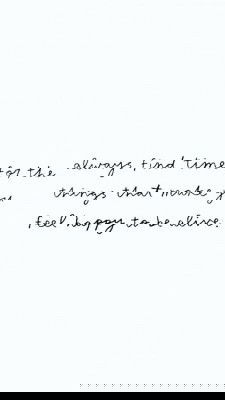 for the always find time
things that make y
feel happy to be alive